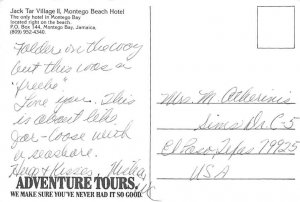 Jack Tar Village II, Montego Beach Hotel
The only hotel in Montego Bay
located right on the beach.
P.O. Box 144, Montego Bay, Jamaica,
(809) 952-4340.
Folder on the way
but this was a
"freebe"
Love you. This
is about like
Jor-loose with
a seashore.
Hugs & Kisses,
ADVENTURE TOURS.
WE MAKE SURE YOU'VE NEVER HAD IT SO GOOD.
Mrs. M.
Sims Dr. C-5
El Paso, Texas 79925
USA